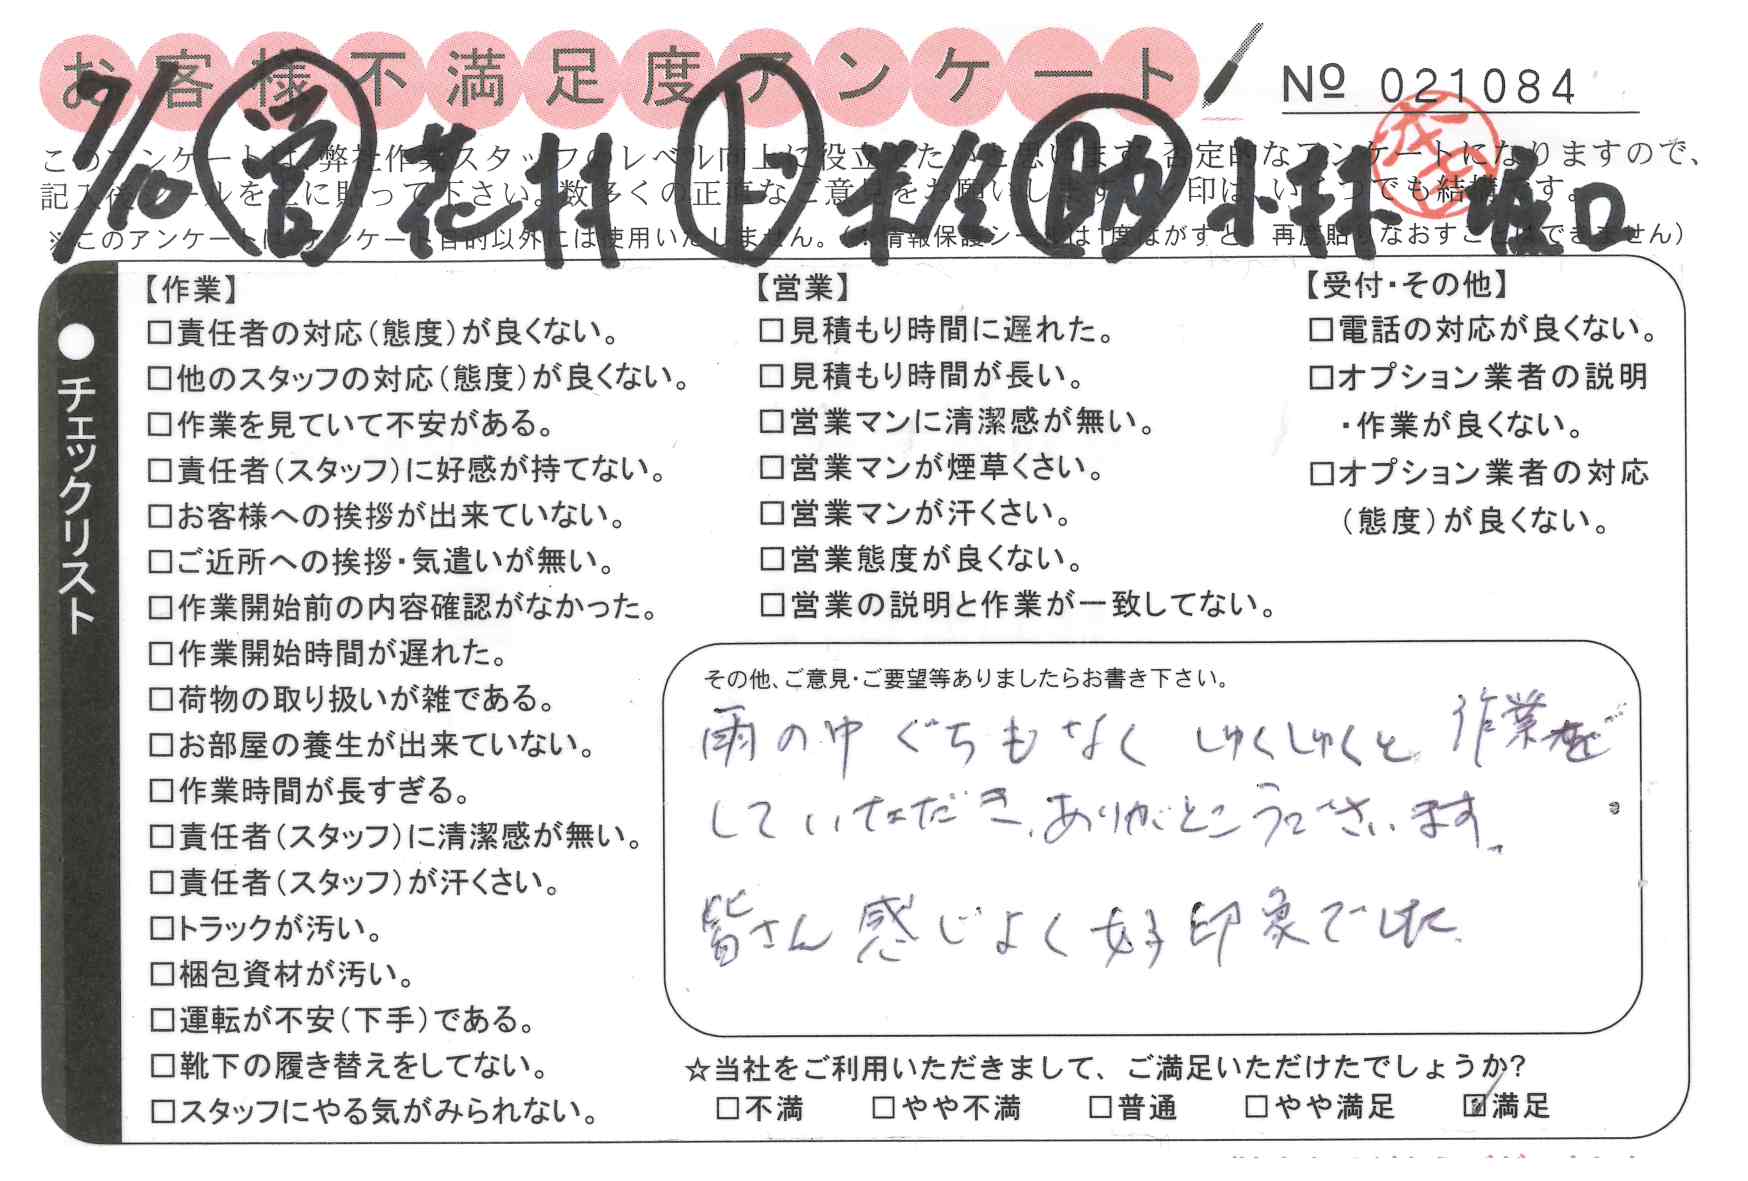 お客様不満足度アンケート
№ 021084
7/10 営 花村 上 助 小林 堀口
このアンケートは、弊社作業スタッフのレベル向上に役立
否定的なアンケートになりますので、
※このアンケートは、アンケート目的以外には使用いたしません。
チェックリスト
【作業】
□責任者の対応(態度)が良くない。
□他のスタッフの対応(態度)が良くない。
□作業を見ていて不安がある。
□責任者(スタッフ)に好感が持てない。
□お客様への挨拶が出来ていない。
□ご近所への挨拶・気遣いが無い。
□作業開始前の内容確認がなかった。
□作業開始時間が遅れた。
□荷物の取り扱いが雑である。
□お部屋の養生が出来ていない。
□作業時間が長すぎる。
□責任者(スタッフ)に清潔感が無い。
□責任者(スタッフ)が汗くさい。
□トラックが汚い。
□梱包資材が汚い。
□運転が不安(下手)である。
□靴下の履き替えをしてない。
□スタッフにやる気がみられない。
【営業】
□見積もり時間に遅れた。
□見積もり時間が長い。
□営業マンに清潔感が無い。
□営業マンが煙草くさい。
□営業マンが汗くさい。
□営業態度が良くない。
□営業の説明と作業が一致してない。
【受付・その他】
□電話の対応が良くない。
□オプション業者の説明
・作業が良くない。
□オプション業者の対応
(態度)が良くない。
その他、ご意見・ご要望等ありましたらお書き下さい。
雨の中 ぐちもなく しゅくしゅくと 作業を
していただき、ありがとうございます。
皆さん 感じよく 好印象でした。
☆当社をご利用いただきまして、ご満足いただけたでしょうか?
□不満 □やや不満 □普通 □やや満足 ☑満足